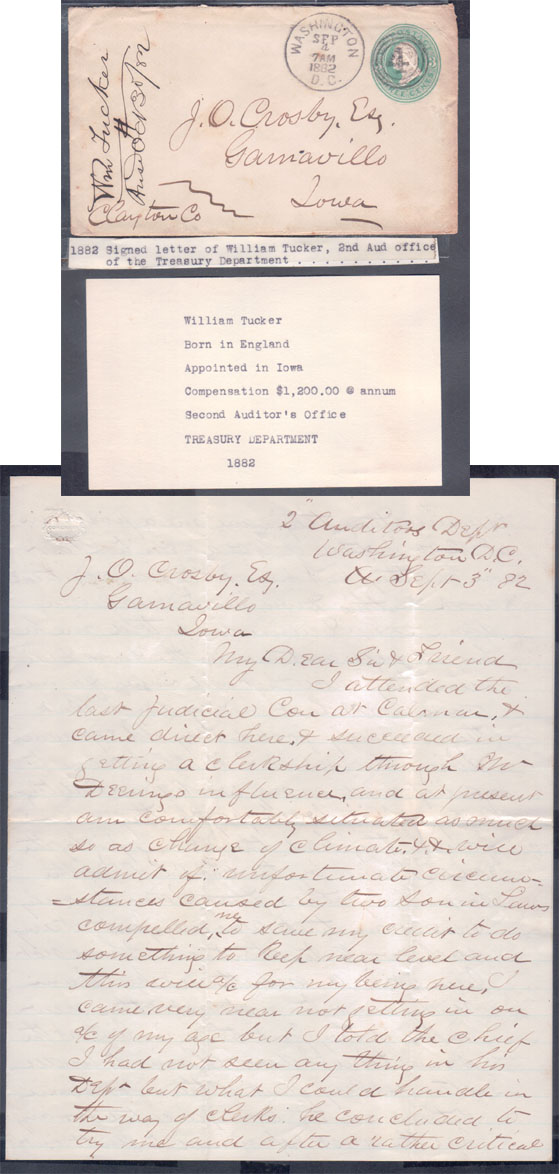 WASHINGTON
SEP
4
7AM
1882
D.C.
J. O. Crosby, Esq.
Garnavillo
Iowa
Clayton Co
Wm Tucker
Ansd Oct 30/82
1882 Signed letter of William Tucker, 2nd Aud office
of the Treasury Department . . . . . . . . . . .
William Tucker
Born in England
Appointed in Iowa
Compensation $1,200.00 @ annum
Second Auditor's Office
TREASURY DEPARTMENT
1882
2" Auditors Dept
Washington D.C.
Sept 3" 82
J. O. Crosby, Esq.
Garnavillo
Iowa
My Dear Sir & Friend
I attended the
last Judicial Con at Calmar, &
came direct here, & succeeded in
getting a clerkship through Mr
Deerings influence, and at present
am comfortably situated as much
so as change of climate &c will
admit of. unfortunate circum-
-stances caused by two son in Laws
compelled, me to save my credit to do
something to keep near level and
this will a/c for my being here, I
came very near not getting in on
a/c of my age but I told the chief
I had not seen any thing in his
Dept but what I could handle in
the way of clerks. he concluded to
try me and after a rather critical